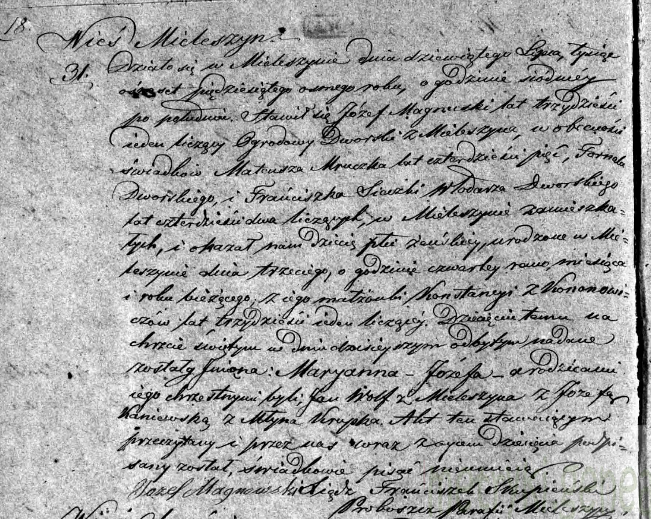 18.
Wieś Mieleszyn.
31. Działo się w Mieleszynie dnia dziewiątego Lipca, tysiąc
osmset pięćdziesiątego osmego roku, o godzinie siodmey
po południu. Stawił się Józef Magnuski lat trzydzieści
ieden liczący Ogrodowy Dworski z Mieleszyna, w obecności
świadków Mateusza Mruczka lat czterdzieści pięć, Fornala
Dworskiego, i Franciszka Siczki Włodarza Dworskiego
lat czterdzieści dwa liczących, w Mieleszynie zamieszka-
łych, i okazał nam dziecię płci żeńskiey, urodzone w Mie-
leszynie dnia trzeciego, o godzinie czwartey rano, miesiąca
i roku bieżącego, z iego małżonki Konstancyi z Kononowi-
czów lat trzydzieści ieden liczącey. Dziecięciu temu na
chrzcie świętym w dniu dzisieyszym odbytym nadane
zostały Imiona: Maryanna - Józefa - a rodzicami
iego chrzestnymi byli Jan Wolf z Mieleszyna z Józefą
Kaniewską z Młyna Krupka. Akt ten stawiącym
przeczytany i przez nas wraz z oycem dziecięcia podpi-
sany został, świadkowie pisać nieumieią.
Józef Magnowski Xiądz Franciszek Skupieński
Proboszcz Parafii Mieleszyn.